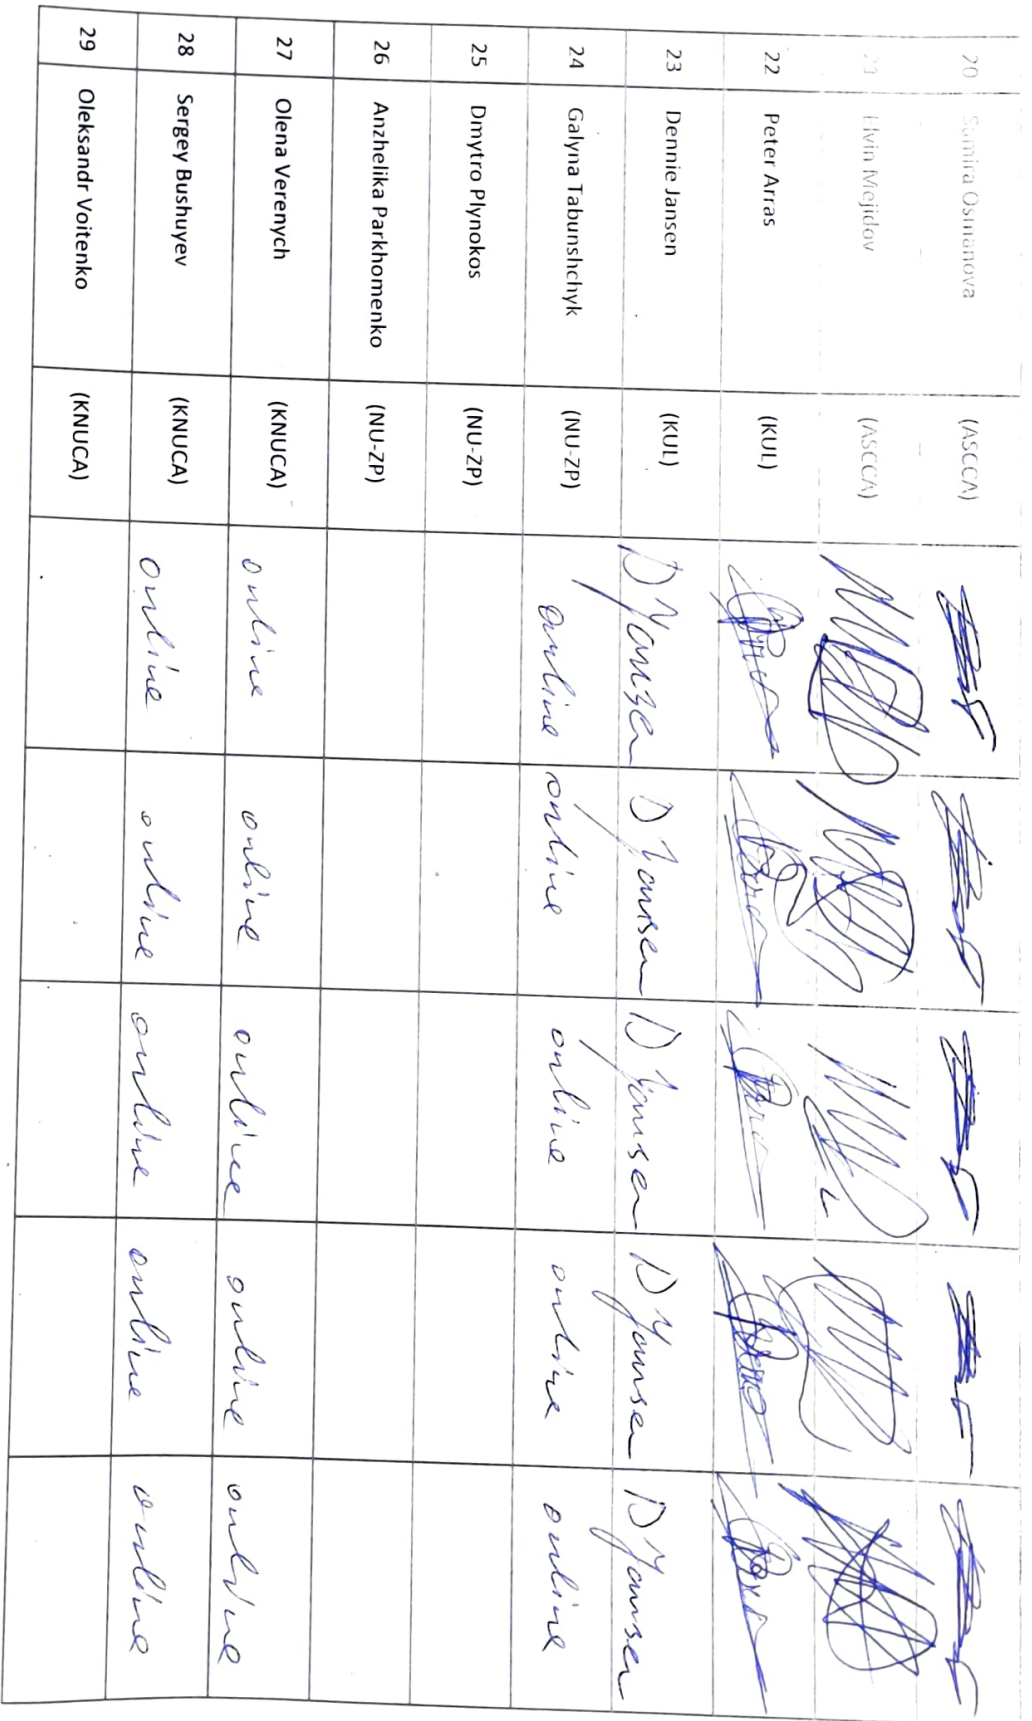 20 Samira Osmanova (ASCCA)
21 Elvin Mejidov (ASCCA)
22 Peter Arras (KUL)
23 Dennie Jansen (KUL) DJansen DJansen DJansen DJansen DJansen
24 Galyna Tabunshchyk (NU-ZP) online online online online online
25 Dmytro Plynokos (NU-ZP)
26 Anzhelika Parkhomenko (NU-ZP)
27 Olena Verenych (KNUCA) online online online online online
28 Sergey Bushuyev (KNUCA) online online online online online
29 Oleksandr Voitenko (KNUCA)